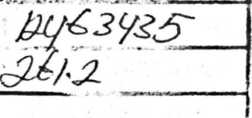 DY63435
261.2